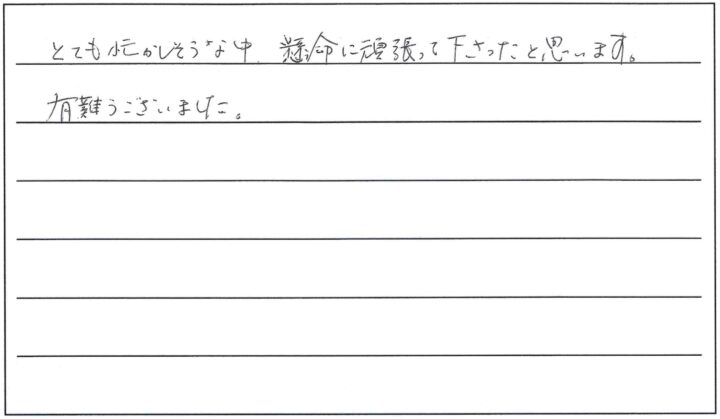 とても忙がしそうな中、懸命に頑張って下さったと思います。
有難うございました。